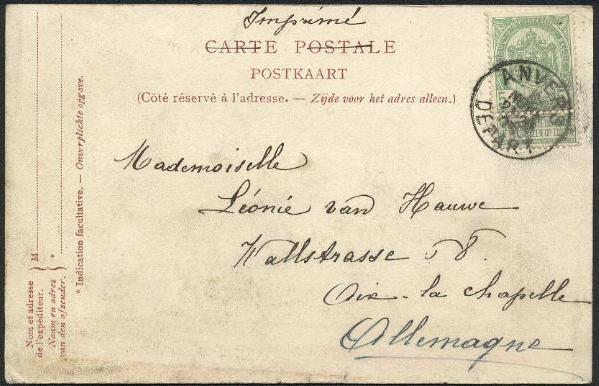 Imprimé
CARTE POSTALE
POSTKAART
(Côté réservé à l'adresse. — Zijde voor het adres alleen.)
ANVERS
DEPART
Mademoiselle
Léonie van Hauwe
Wallstrasse 58.
Aix-la chapelle
Allemagne
* Indication facultative. — Onverplichte opgave.
M
*
Nom et adresse
de l'expéditeur.
Naam en adres
van den afzender.